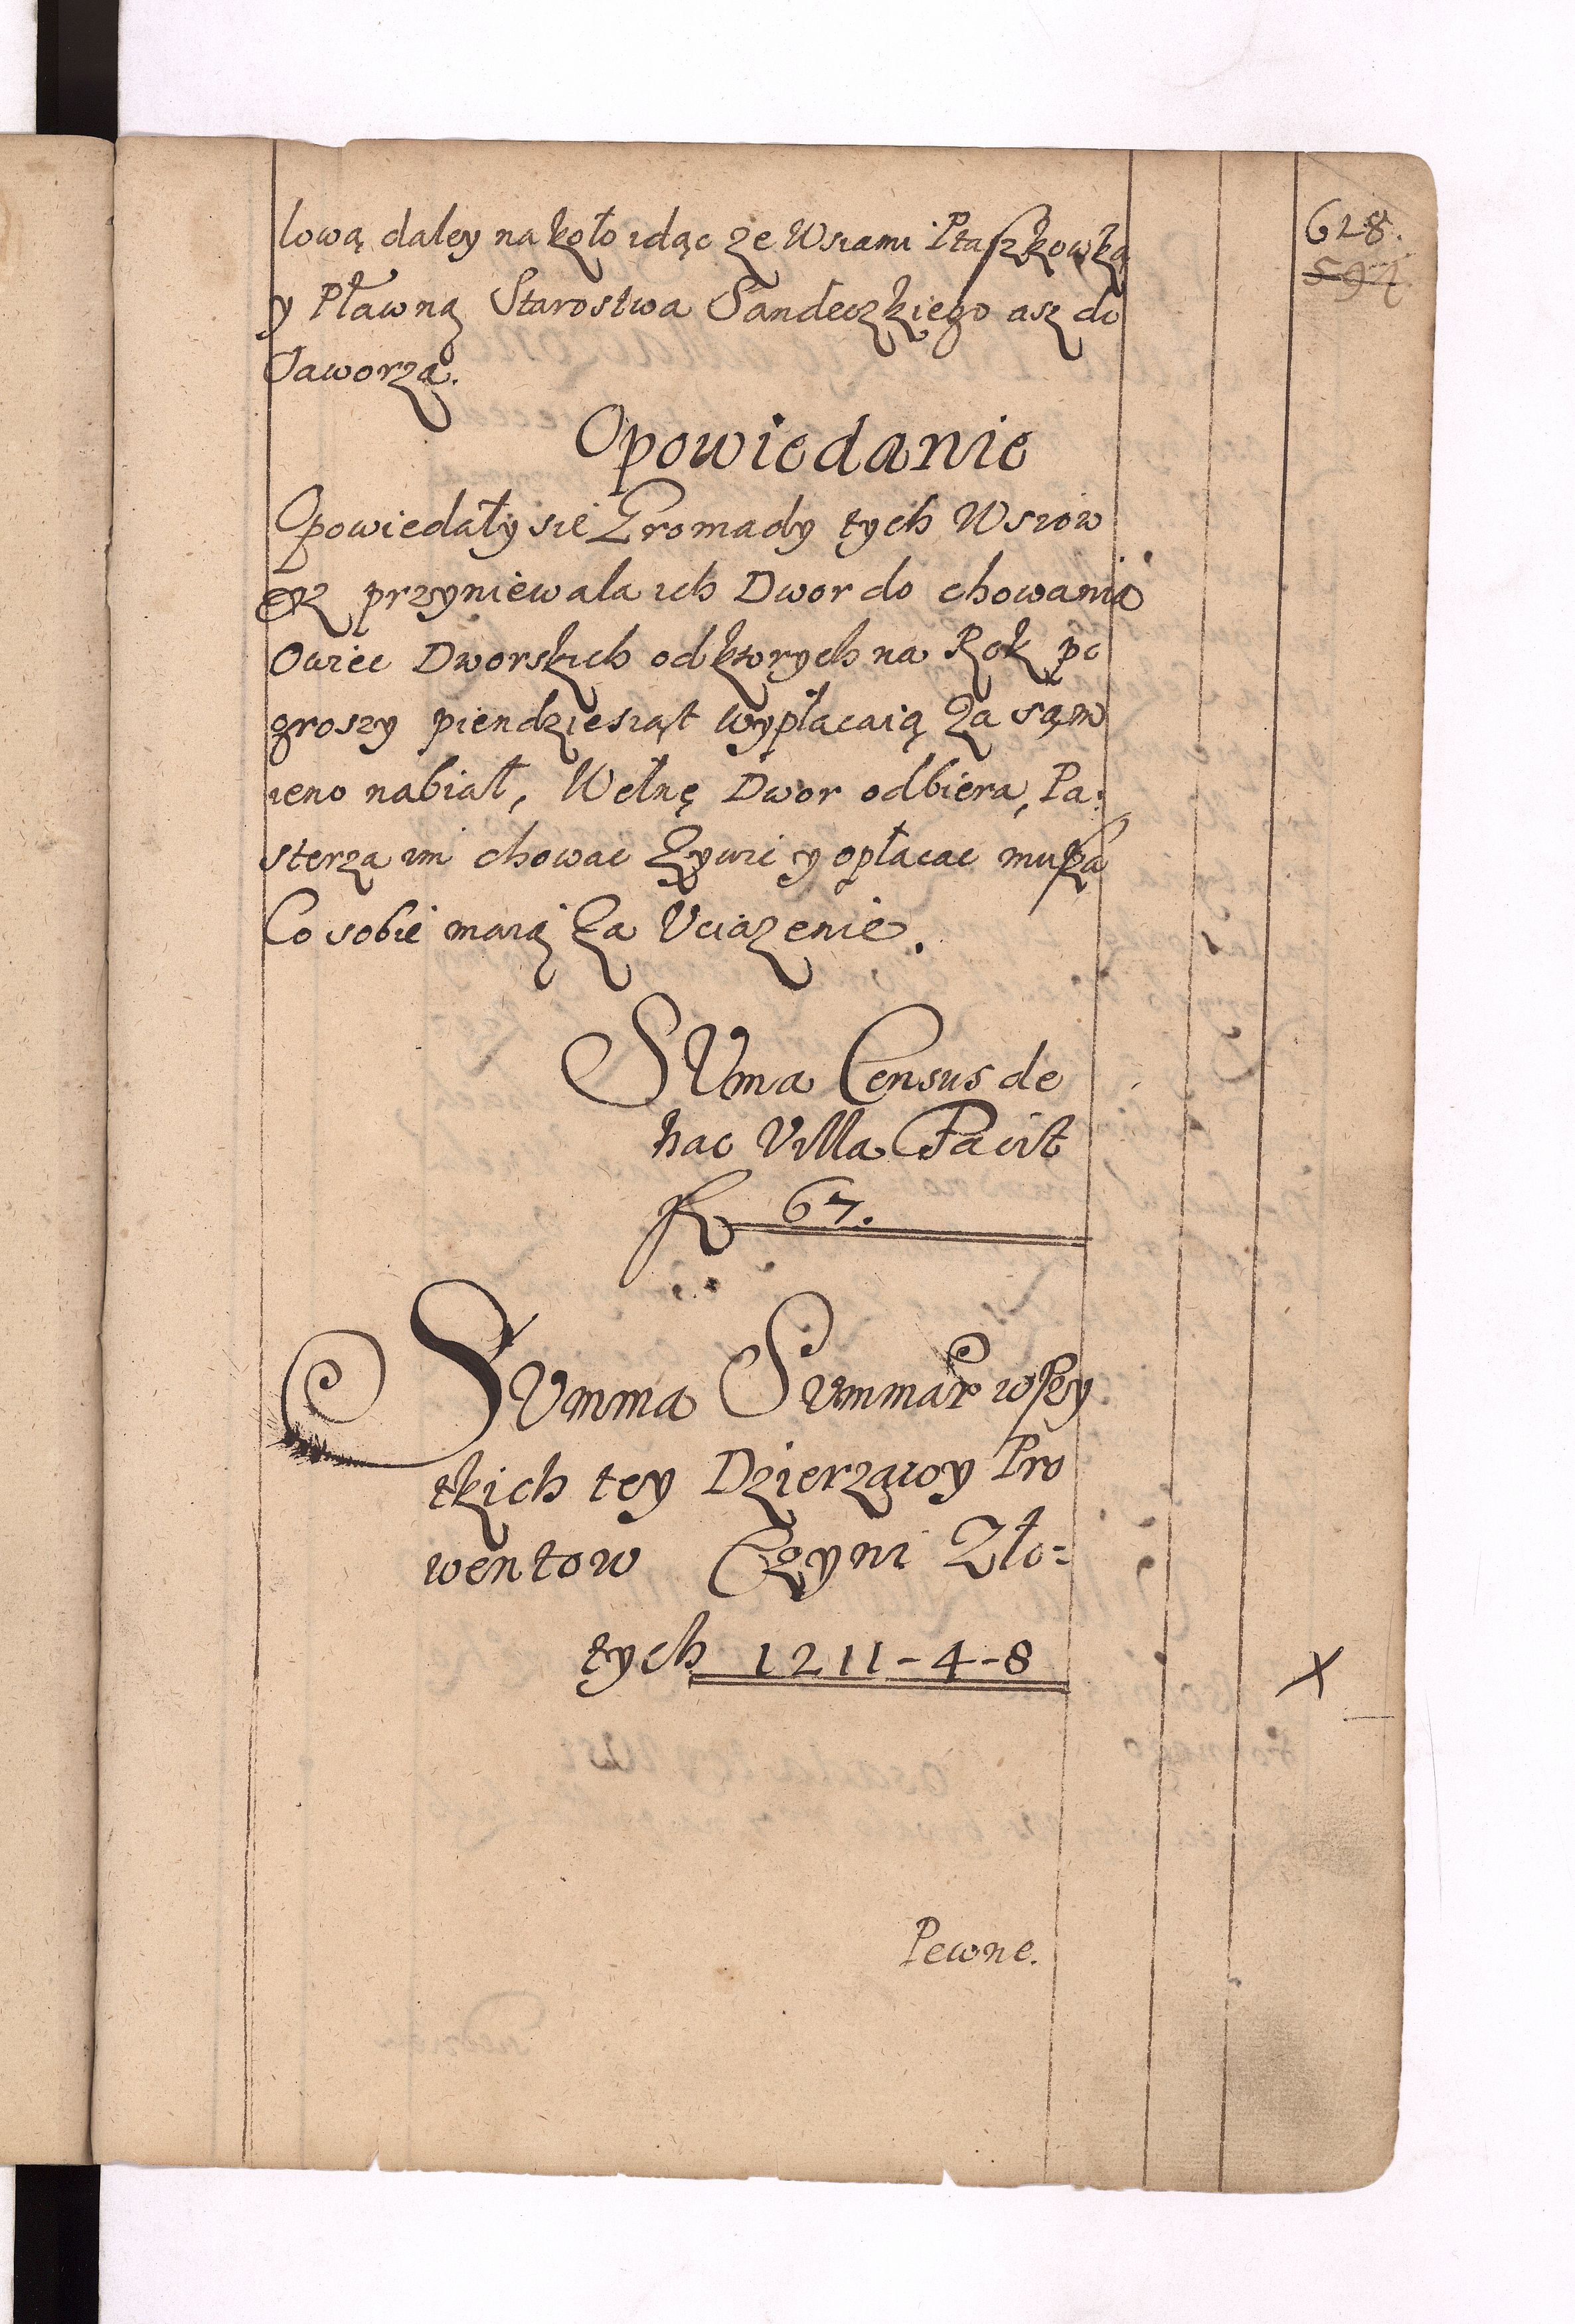 628.
594
lową daley na koło idąc ze Wsiami Ptaszkowką
y Pławną Starostwa Sandeczkiego asz do
Jaworzą.
Opowiedanie
Opowiedały się Gromady tych Wsiow
esz przyniewala ich Dwor do chowania
Owiec Dworskich od ktorych na Rok po
groszy piendziesiąt wypłacaią za sąm
ieno nabiał, Wełnę Dwor odbiera, Pa:
sterza im chowac zywic y opłacac muszą
Co sobie maią za Uciązenie.
SUma Census de
hac Villa Facit
fl 67.
SUmma Summar wszy
tkich tey Dzierzawy Pro
wentow Czyni Zło=
tych 1211-4-8
X
Pewne.